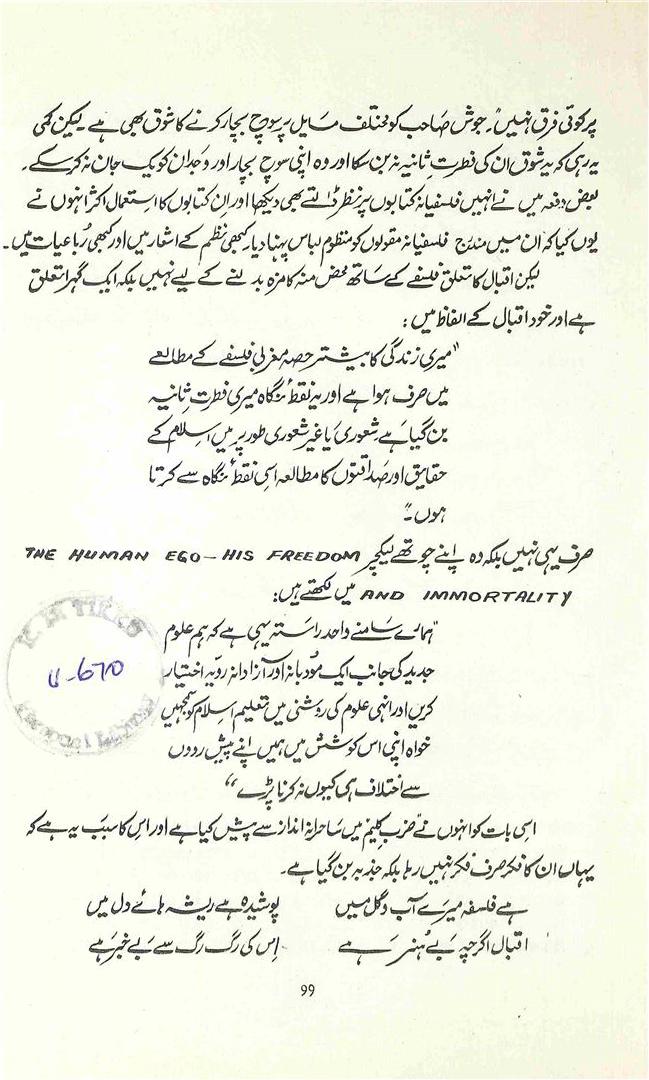 پر کوئی فرق نہیں"۔ جوش صاحب کو مختلف مسایل پر سوچ بچار کرنے کا شوق بھی ہے ۔ لیکن کمی
یہ رہی کہ یہ شوق ان کی فطرتِ ثانیہ نہ بن سکا اور وہ اپنی سوچ بچار اور وجدان کو یک جان نہ کر سکے۔
بعض دفعہ میں نے انہیں فلسفیانہ کتابوں پر نظر ڈالتے بھی دیکھا اور اِن کتابوں کا استعمال اکثر انہوں نے
یوں کیا کہ ان میں مندرج فلسفیانہ مقولوں کو منظوم لباس پہنا دیا۔ کبھی نظم کے اشعار میں اور کبھی رُباعیات میں۔
لیکن اقبال کا تعلق فلسفے کے ساتھ محض منہ کا مزہ بدلنے کے لیے نہیں بلکہ ایک گہرا تعلق
ہے اور خود اقبال کے الفاظ میں :
"میری زندگی کا بیشتر حصہ مغربی فلسفے کے مطالعے
میں صرف ہوا ہے اور یہ نقطۂ نگاہ میری فطرتِ ثانیہ
بن گیا ہے شعوری یا غیر شعوری طور پر میں اسلام کے
حقایق اور صداقتوں کا مطالعہ اسی نقطۂ نگاہ سے کرتا
ہوں۔"
صرف یہی نہیں بلکہ وہ اپنے چوتھے لیکچر THE HUMAN EGO — HIS FREEDOM
AND IMMORTALITY میں لکھتے ہیں:
"ہمارے سامنے واحد راستہ یہی ہے کہ ہم علوم
جدید کی جانب ایک مودبانہ اور آزادانہ رویہ اختیار
کریں اور انہی علوم کی روشنی میں تعلیم اسلام کو سمجھیں
خواہ اپنی اس کوشش میں ہمیں اپنے پیش رووں
سے اختلاف ہی کیوں نہ کرنا پڑے"
اسی بات کو انہوں نے ضربِ کلیم میں ساحرانہ انداز سے پیش کیا ہے اور اس کا سبب یہ ہے کہ
یہاں ان کا فکر صرف فکر نہیں رہا بلکہ جذبہ بن گیا ہے۔
ہے فلسفہ میرے آب و گل میں پوشیدہ ہے ریشہ ہائے دل میں
اقبال اگرچہ بے ہُنر ہے اِس کی رگ رگ سے بے خبر ہے
99
U-670